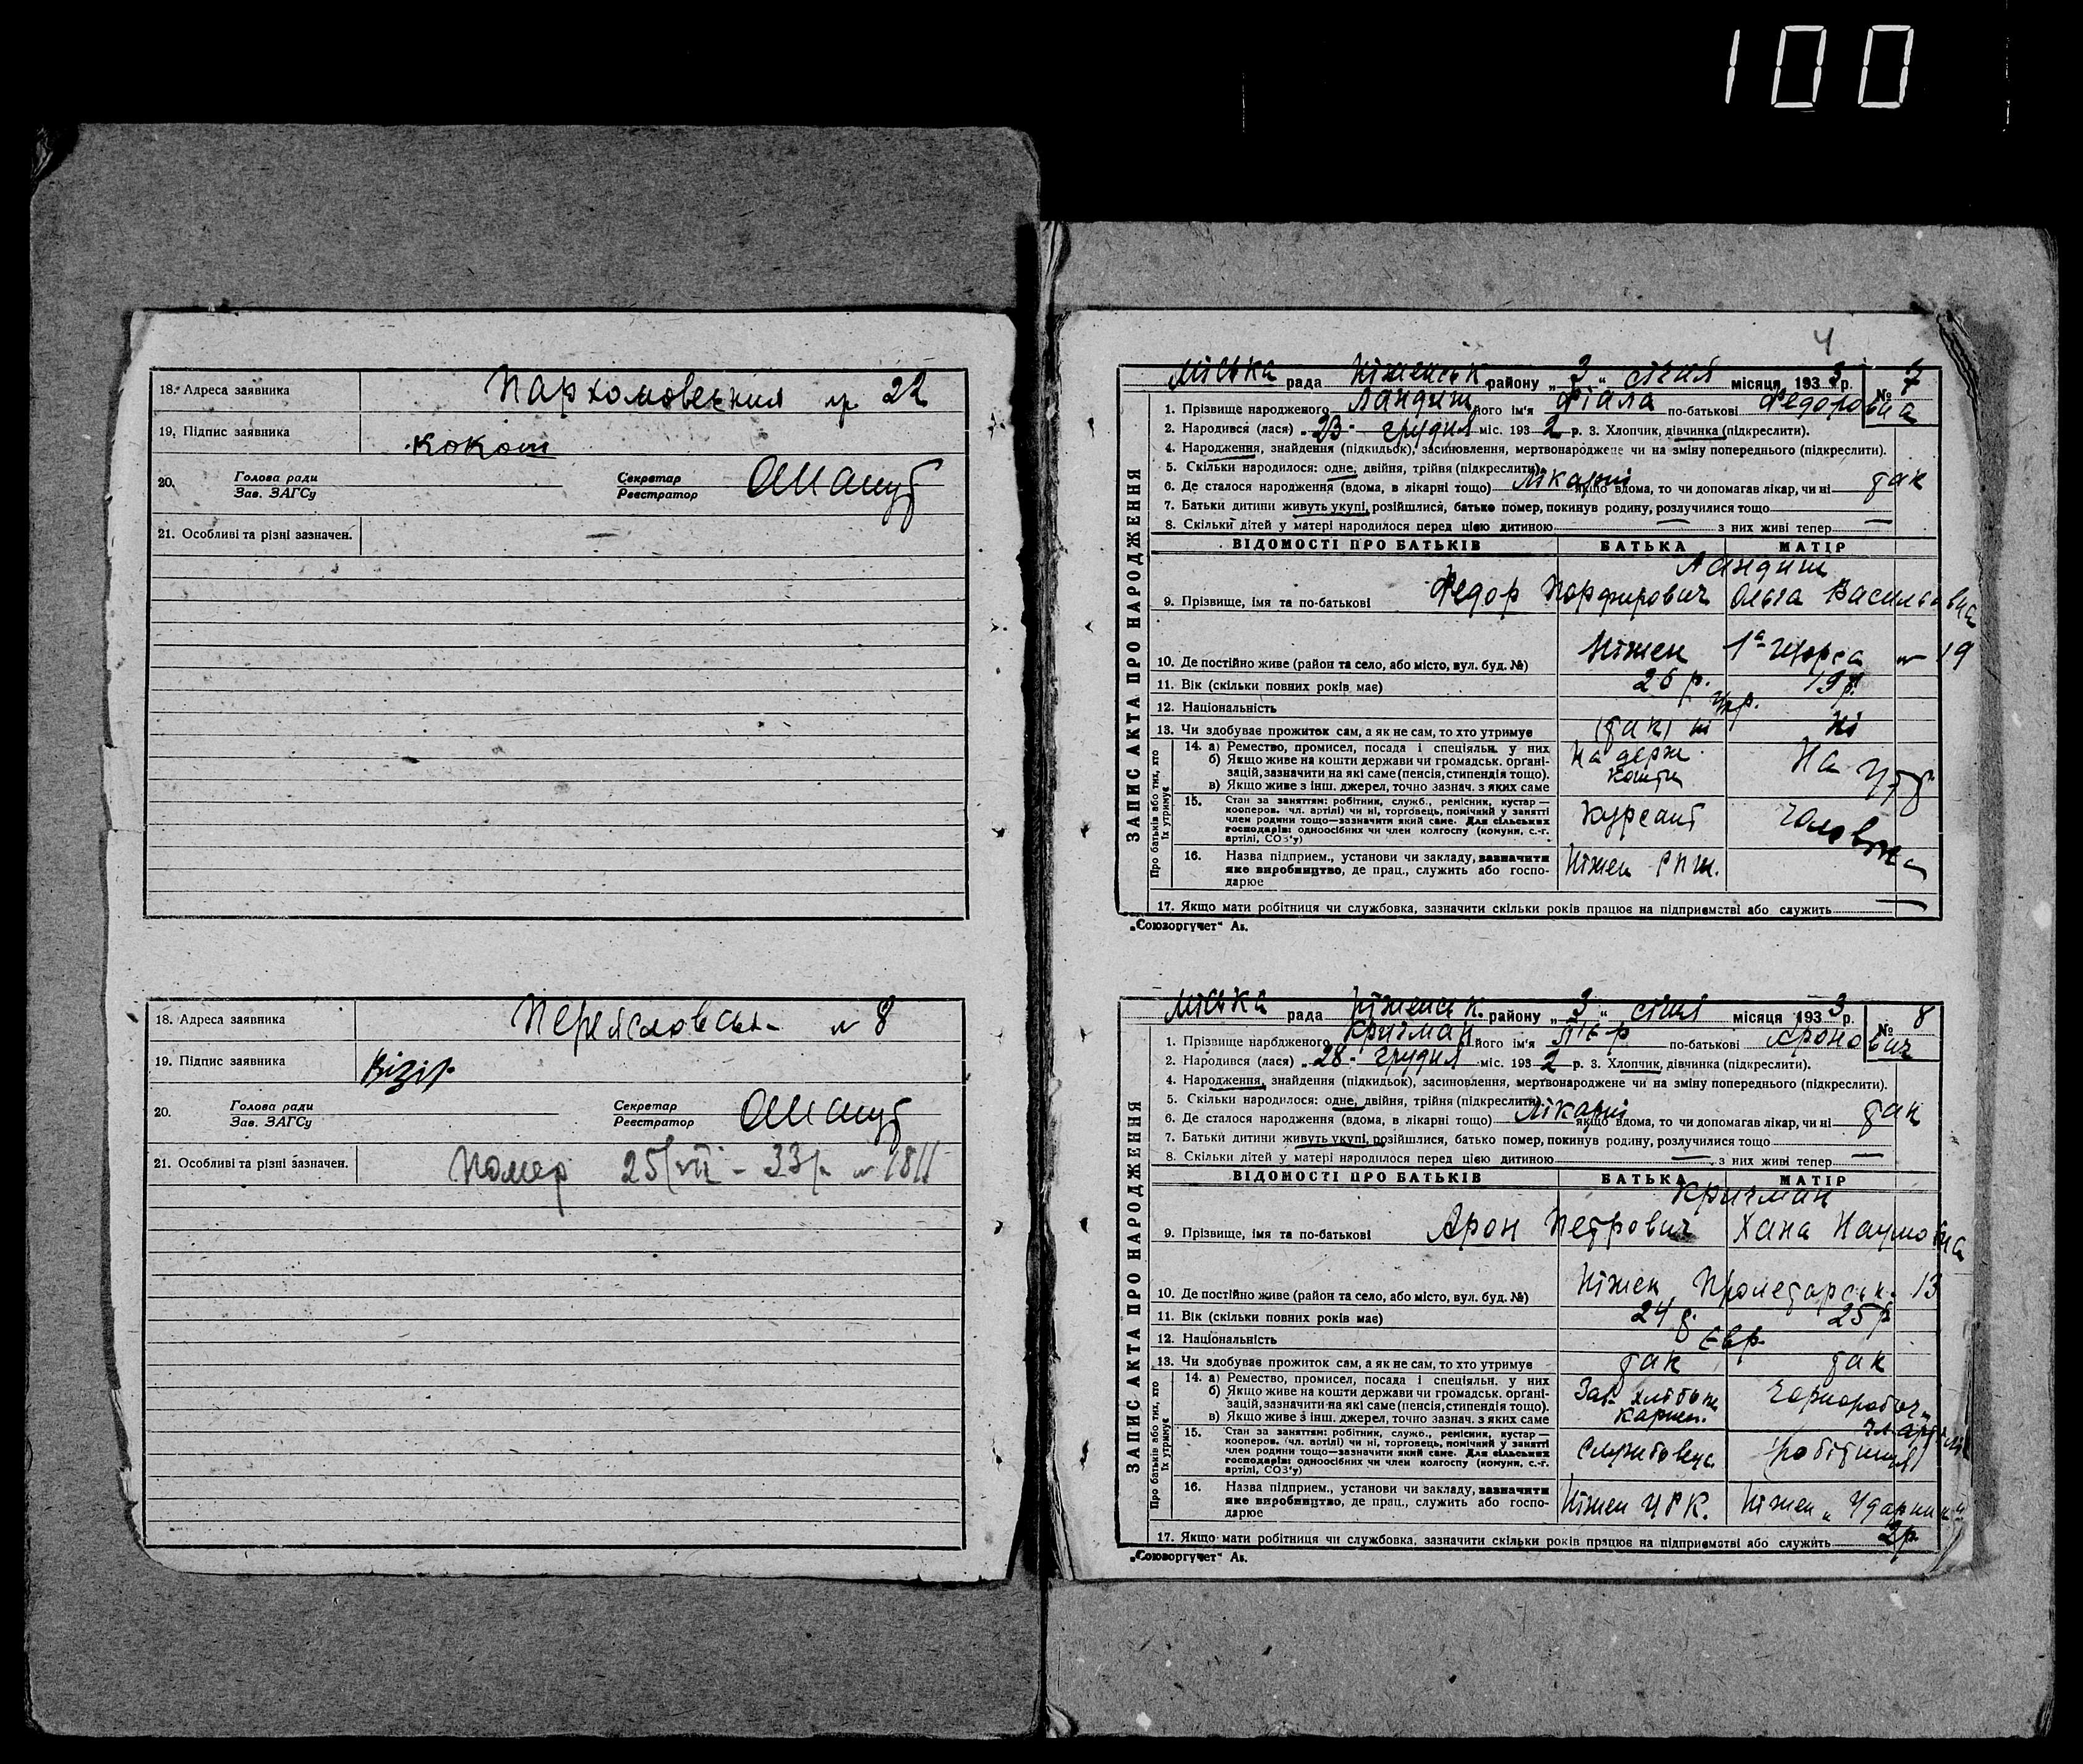 100
18. Адреса заявника Пархомовския № 22
19. Підпис заявника Кокот
20. Голова ради Секретар
Зав. ЗАГСу Реєстратор
21. Особливі та різні зазначен. —
18. Адреса заявника № 8
19. Підпис заявника Візір
20. Голова ради Секретар
Зав. ЗАГСу Реєстратор
21. Особливі та різні зазначен. Помер 25/VII - 33р № 1811
4
ЗАПИС АКТА ПРО НАРОДЖЕННЯ
Міська рада Ніженськ. району „ 3 “ січня місяця 193 3 р. № 7
1. Прізвище народженого Ландиш його ім'я Фіала по-батькові Федоровна
2. Народився (лася) „ 23 - грудня міс. 193 2 р. 3. Хлопчик, дівчинка (підкреслити).
4. Народження, знайдення (підкидьок), засиновлення, мертвонароджене чи на зміну попереднього (підкреслити).
5. Скільки народилося: одне, двійня, трійня (підкреслити)
6. Де сталося народження (вдома, в лікарні тощо) Лікарні якщо вдома, то чи допомагав лікар, чи ні так
7. Батьки дитини живуть укупі, розійшлися, батько помер, покинув родину, розлучилися тощо
8. Скільки дітей у матері народилося перед цією дитиною — з них живі тепер —
ВІДОМОСТІ ПРО БАТЬКІВ БАТЬКА МАТІР
Ландиш
9. Прізвище, імя та по-батькові Федор Порфирович Ольга Васильовна
10. Де постійно живе (район та село, або місто, вул. буд. №) Ніжен 1а Щорса № 19
11. Вік (скільки повних років має) 26 р. 19 р.
12. Національність Укр.
13. Чи здобуває прожиток сам, а як не сам, то хто утримує (так) ні ні
Про батьків або тих, хто їх утримує
14. а) Ремество, промисел, посада і спеціяльн. у них
б) Якщо живе на кошти держави чи громадськ. орґані-
зацій, зазначити на які саме (пенсія, стипендія тощо).
в) Якщо живе з інш. джерел, точно зазнач. з яких саме
На держ. кошти На утр
15. Стан за заняттям: робітник, служб., ремісник, кустар —
кооперов. (чл. артілі) чи ні, торговець, помічний у занятті
член родини тощо—зазначити який саме. Для сільських
господарів: одноосібних чи член колгоспу (комуни, с.-г.
артілі, СОЗ'у)
Курсант Чоловіка
16. Назва підприєм., установи чи закладу, зазначити
яке виробництво, де прац., служить або госпо-
дарює
17. Якщо мати робітниця чи службовка, зазначити скільки років працює на підприємстві або служить —
„Союзоргучет“ Ав.
ЗАПИС АКТА ПРО НАРОДЖЕННЯ
Міська рада Ніженськ. району „ 3 “ січня місяця 193 3 р. № 8
1. Прізвище народженого Кричман його ім'я по-батькові Аронович
2. Народився (лася) „ 28 - грудня міс. 193 2 р. 3. Хлопчик, дівчинка (підкреслити).
4. Народження, знайдення (підкидьок), засиновлення, мертвонароджене чи на зміну попереднього (підкреслити).
5. Скільки народилося: одне, двійня, трійня (підкреслити)
6. Де сталося народження (вдома, в лікарні тощо) Лікарні якщо вдома, то чи допомагав лікар, чи ні так
7. Батьки дитини живуть укупі, розійшлися, батько помер, покинув родину, розлучилися тощо
8. Скільки дітей у матері народилося перед цією дитиною — з них живі тепер —
ВІДОМОСТІ ПРО БАТЬКІВ БАТЬКА МАТІР
Кричман
9. Прізвище, імя та по-батькові Арон Петрович Хана Наумовна
10. Де постійно живе (район та село, або місто, вул. буд. №) Ніжен Пролетарськ. 13
11. Вік (скільки повних років має) 24 р. 25 р
12. Національність Євр.
13. Чи здобуває прожиток сам, а як не сам, то хто утримує так так
Про батьків або тих, хто їх утримує
14. а) Ремество, промисел, посада і спеціяльн. у них
б) Якщо живе на кошти держави чи громадськ. орґані-
зацій, зазначити на які саме (пенсія, стипендія тощо).
в) Якщо живе з інш. джерел, точно зазнач. з яких саме
15. Стан за заняттям: робітник, служб., ремісник, кустар —
кооперов. (чл. артілі) чи ні, торговець, помічний у занятті
член родини тощо—зазначити який саме. Для сільських
господарів: одноосібних чи член колгоспу (комуни, с.-г.
артілі, СОЗ'у)
Службовець робітниця
16. Назва підприєм., установи чи закладу, зазначити
яке виробництво, де прац., служить або госпо-
дарює
Ніжен ЦРК. Ніжен „Ударник“
17. Якщо мати робітниця чи службовка, зазначити скільки років працює на підприємстві або служить 2 р.
„Союзоргучет“ Ав.